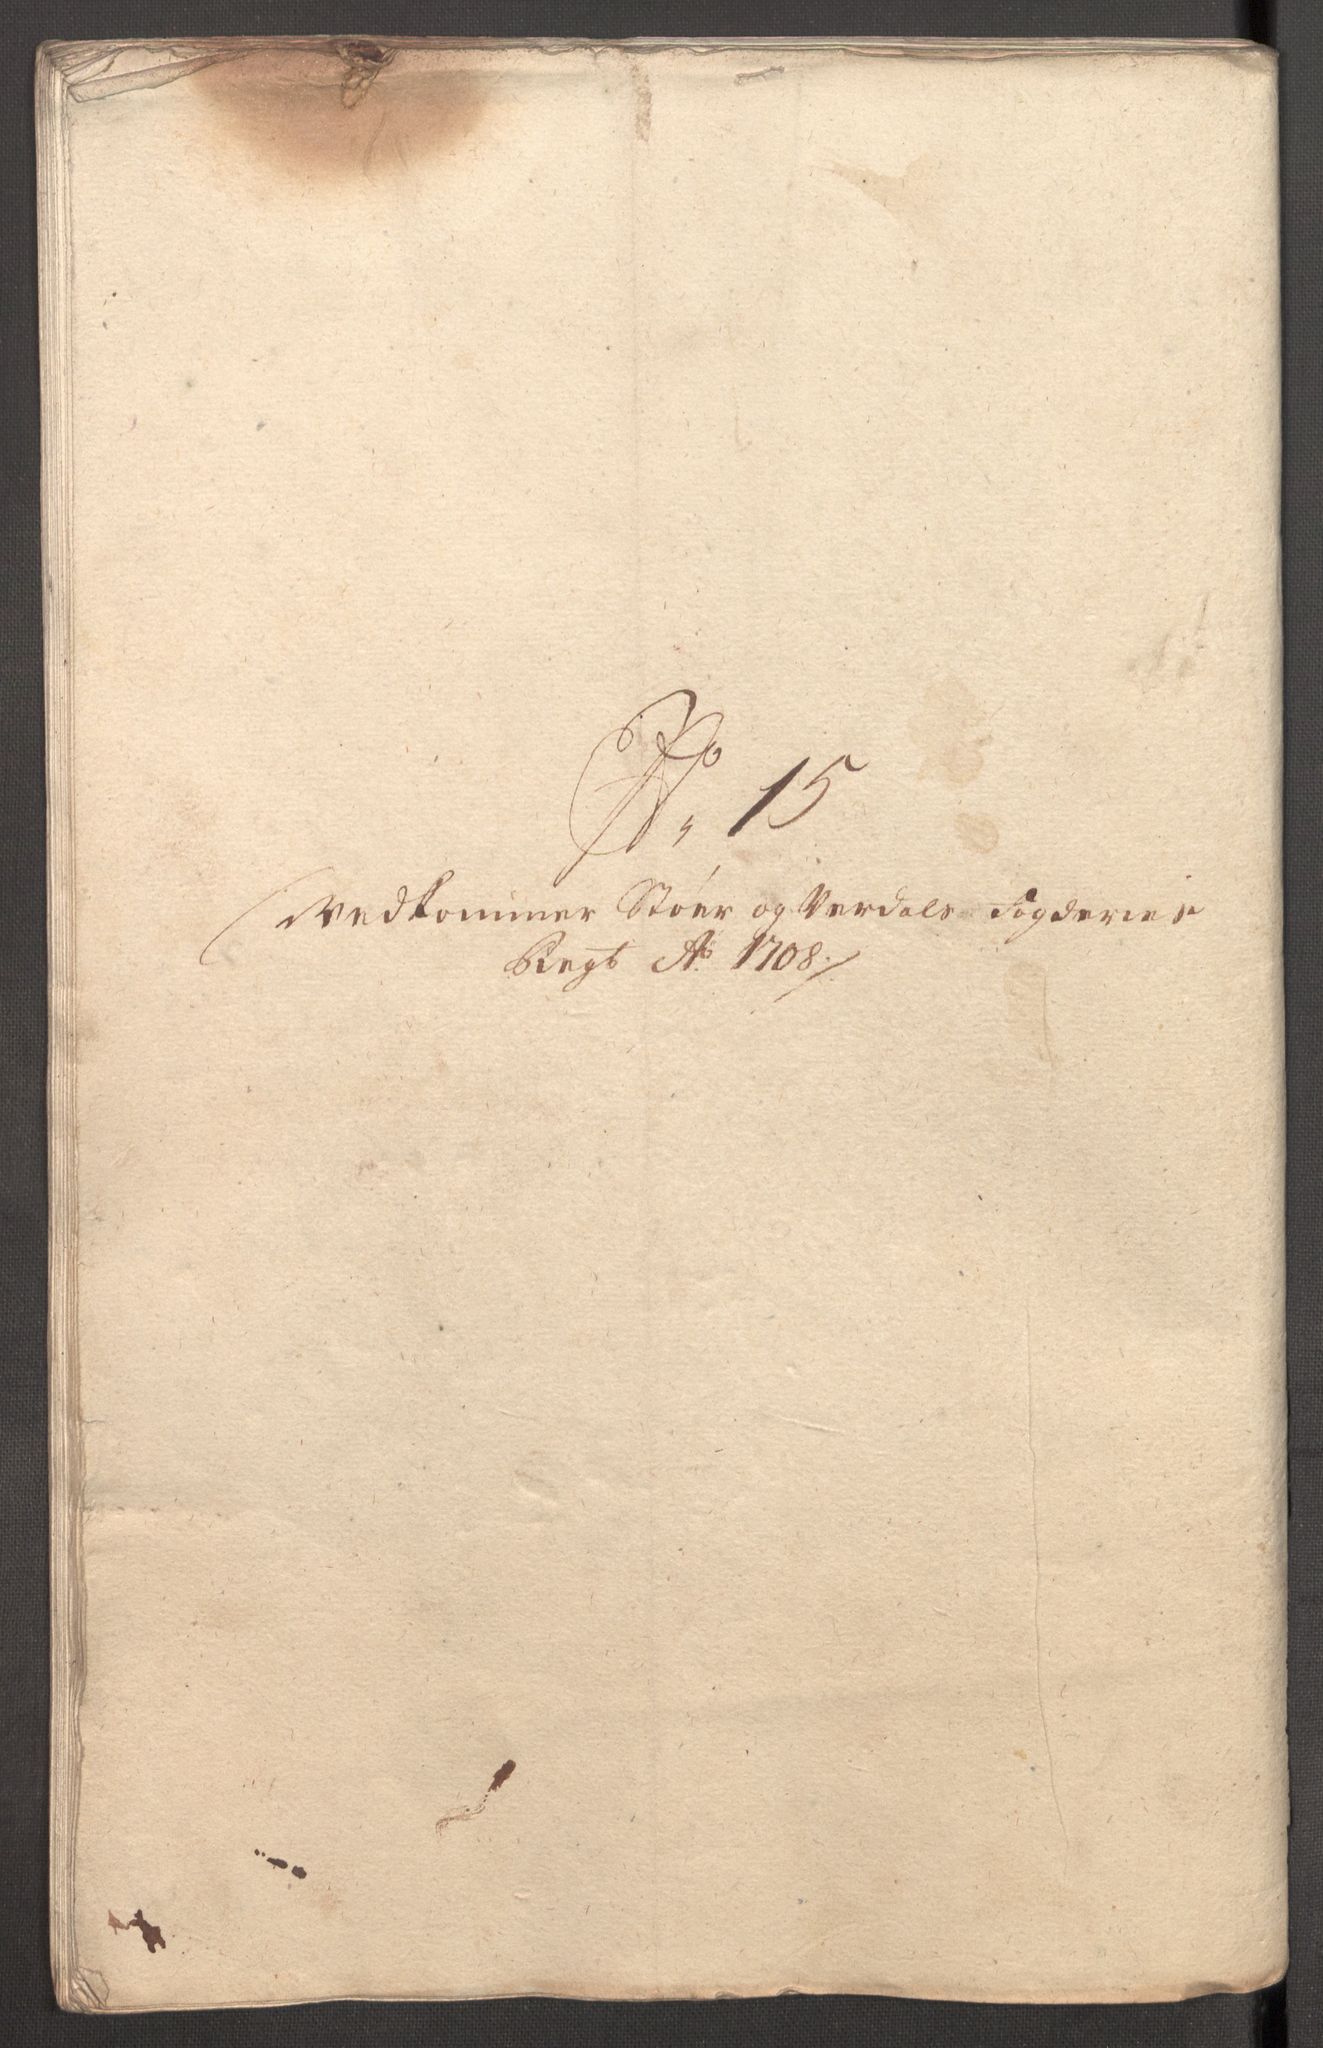 No. 15
Vedkommer Støer og Verdals Fogderies
Regt Ao 1708